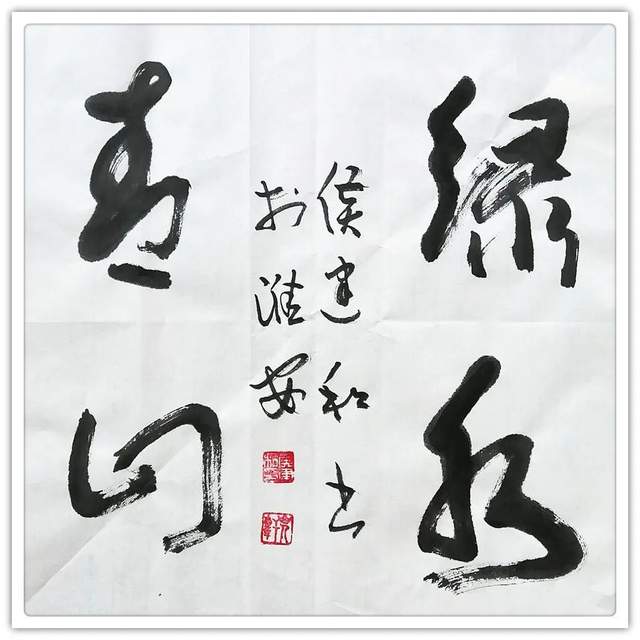 绿水
青山
侯建和书
於淮安